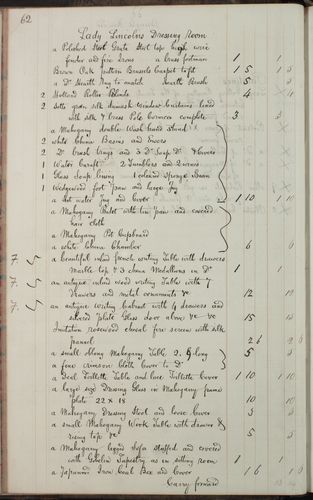 62
Lady Lincolns Dressing Room
a Polished Steel Grate Steel top high wire
fender and fire Irons a brass footman 1 1
Brown Oak Pattern Brussels Carpet to fit 1 5 1 5
a Do Hearth Rug to match Hearth Brush 5 5
2 Holland Roller Blinds 4
2 setts green silk damask window curtains lined
with silk & Brass Pole Cornices complete 3 3
a Mahogany double Wash hand Stand
2 white China Basins and Ewers
2 Do Brush trays and 3 Do Soap Do & Covers
1 Water Caraft 2 Tumblers and 2 covers
1 Glass Soap lining 1 colored Sponge Basin
1 Wedgewood foot pan and large Jug
a hot water Jug and cover 1 10 1 10
a Mahogany Bidet with tin pan and covered
hair cloth
a Mahogany Pot Cupboard
a white China Chamber 6 6
a beautiful inlaid french writing Table with drawers
Marble top & 3 china Medallions in Do 1
an antique inlaid wood writing Table with 7
drawers and metal ornaments &c 12 12
an antique writing Cabinet with 4 drawers and
silvered plate Glass door above &c &c 15 15
Imitation rosewood cheval fire screen with silk
pannel 2 6 2 6
a small oblong Mahogany Table 2.9 long 5 5
a fine crimson Cloth Cover to Do
a Deal Toillette Table and lace Toillette Cover 1 10 1 10
a large size Dressing Glass in Mahogany frame
plate 22 x 18 10 10
a Mahogany Dressing Stool and loose Cover 3 3
a small Mahogany Work Table with drawer &
rising top &c 5 5
a Mahogany legged Sofa stuffed and covered
with Goblin Tapestry as in sitting room 1 1
a Japanned Iron Coal Box and Cover 1 6 1
Carry forward